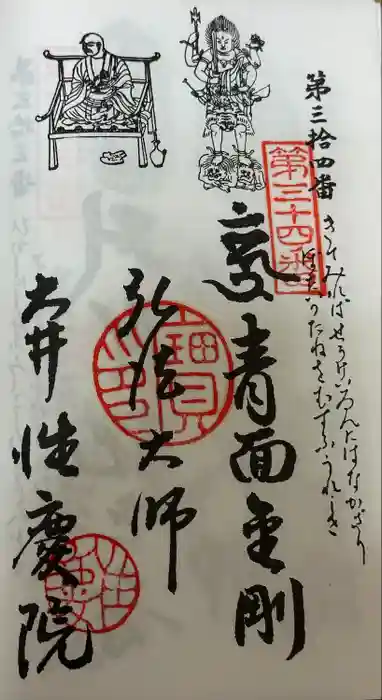 第三拾四番
第三十四番
きてみればせうけいゐんにはなかざり
ぼだいのたねをむすぶうれしき
青面金剛
弘法大師
大井 性慶院